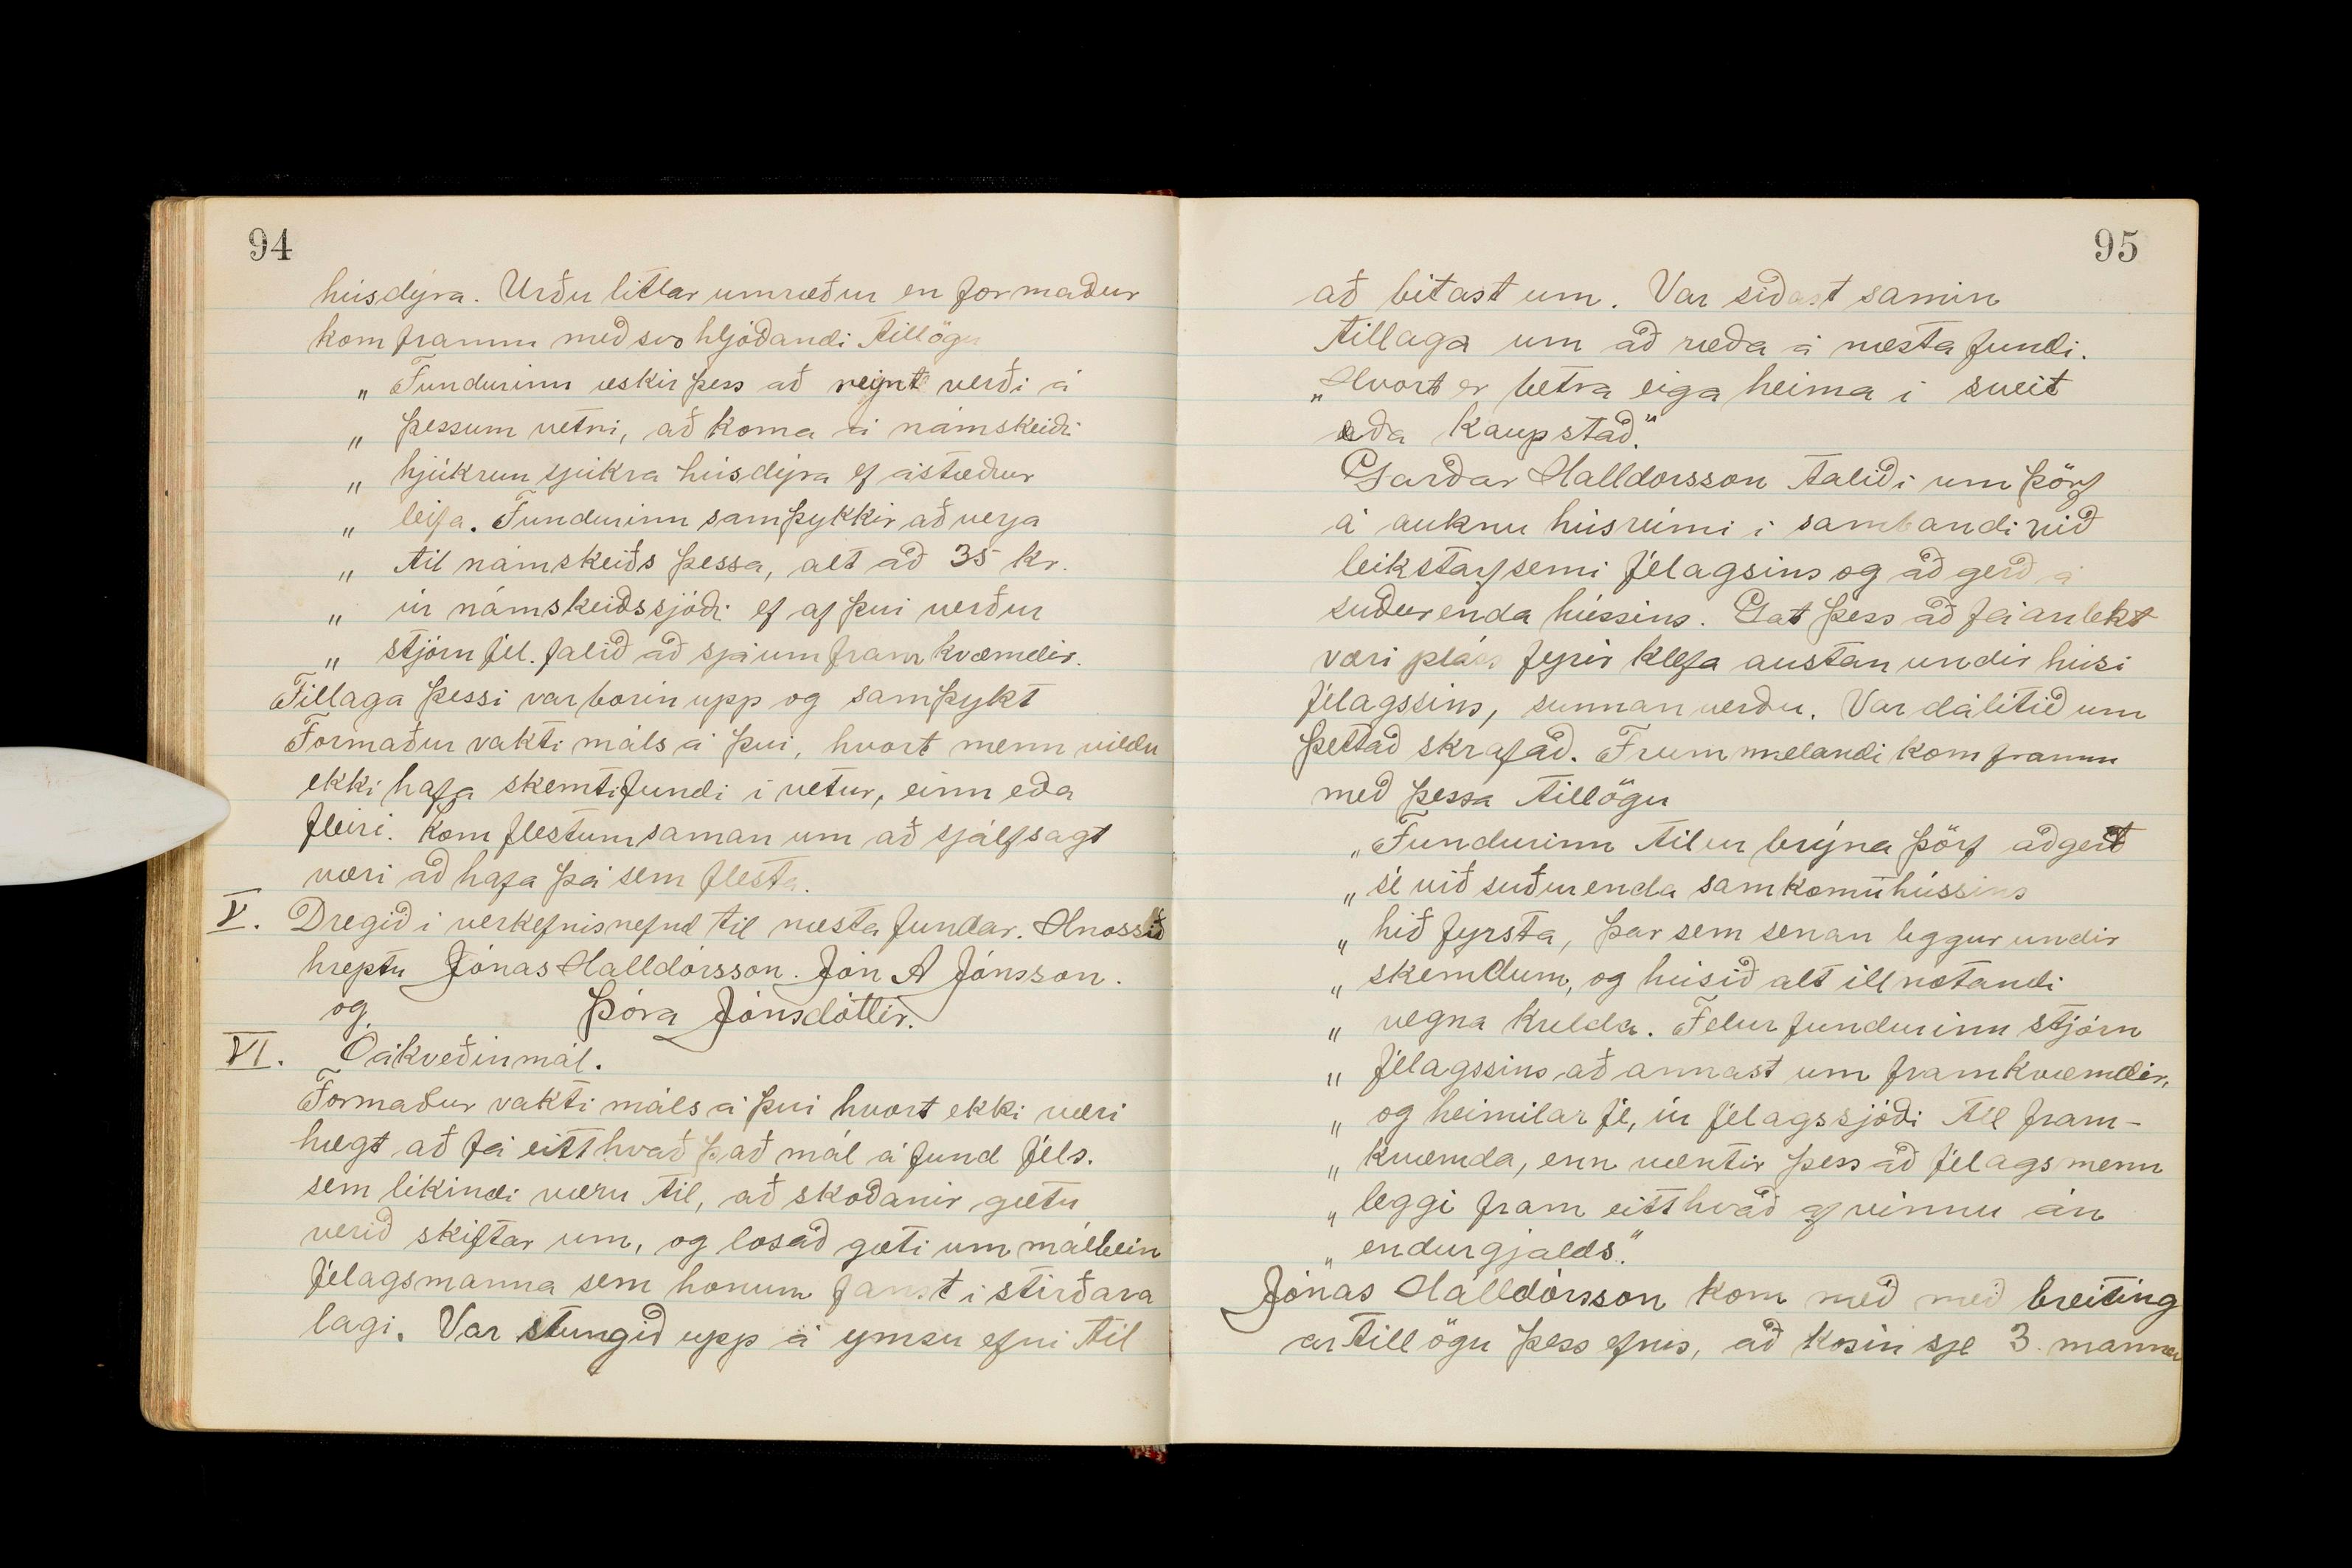 94
húsdýra. Urðu litlar umræður en formaður
kom framm með svo hljóðandi tillögu
„ Fundurinn æskir þess að reynt verði á
„ þessum vetri, að koma á námskeiði
„ hjúkrun sjúkra húsdýra ef ástæður
„ leifa. Fundurinn samþykkir að verja
„ til námskeiðs þessa, alt að 35 kr.
„ úr námskeiðssjóði ef af því verður
„ stjórn fél. falið að sjá um framkvæmdir.
Tillaga þessi var borin upp og samþykt
Formaður vakti máls á því, hvort menn vildu
ekki hafa skemtifundi í vetur, einn eða
fleiri. Kom flestum saman um að sjálfsagt
væri að hafa þá sem flesta.
V. Dregið í verkefnisnefnd til næsta fundar. Hnossið
hreptu Jónas Halldórsson. Jón A Jónsson.
og Þóra Jónsdóttir.
VI. Óákveðin mál.
Formaður vakti máls á því hvort ekki væri
hægt að fá eitthvað það mál á fund féls.
sem líkindi væru til, að skoðanir gætu
verið skiftar um, og losað gæti um málbein
félagsmanna sem honum fanst í stirðara
lagi. Var stungið upp á ymsu efni til
95
að bítast um. Var síðast samin
tillaga um að ræða á næsta fundi.
„Hvort er betra eiga heima í sveit
eða kaupstað."
Garðar Halldorsson talaði um þörf
á auknu húsrúmi í sambandi við
leikstarfsemi félagsins og aðgerð á
suðurenda hússins. Gat þess að fáanlekt
væri pláss fyrir klefa austan undir húsi
félagssins, sunnanverðu. Var dálítið um
þettað skrafað. Frummælandi kom framm
með þessa tillögu
„Fundurinn tilur brýna þörf aðgert
„ sé við suðurenda samkomuhússins
„ hið fyrsta, þar sem senan liggur undir
„ skemdum, og húsið alt illnotandi
„ vegna kulda. Felur fundurinn stjórn
„ félagssins að annast um framkvæmdir,
„ og heimilar fé, úr félagssjóði til fram-
„ kvæmda, enn væntir þess að félagsmenn
„ leggi fram eitthvað af vinnu án
„ endurgjalds."
Jónas Halldórsson kom með með breiting
ar tillögu þess efnis, að kosin sje 3 manna